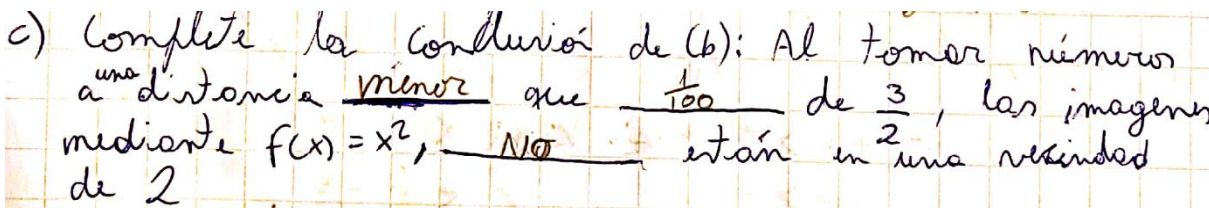 c) Complete la conclusión de (b): Al tomar números
a una distancia menor que 1/100 de 3/2, las imagenes
mediante f(x) = x², NO están en una vecindad
de 2